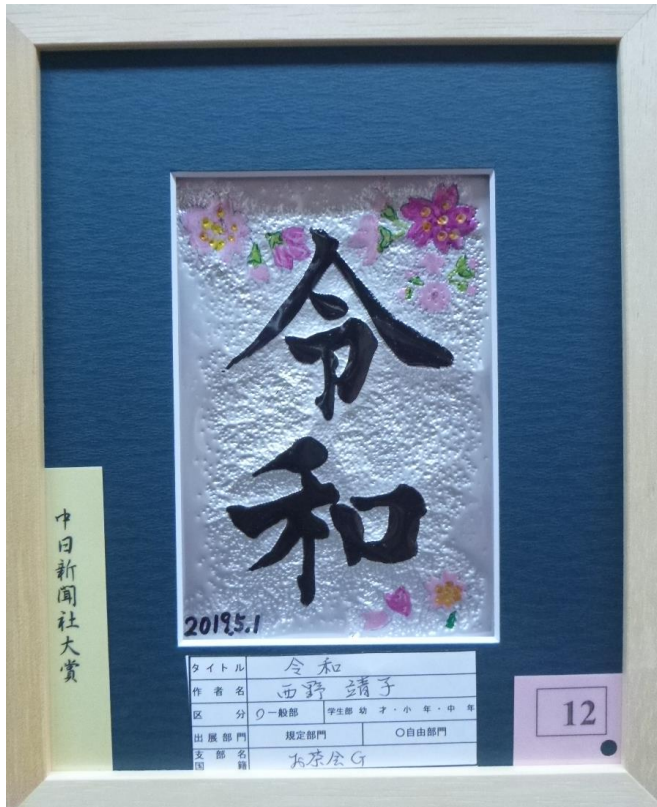 令
和
2019.5.1
中日新聞社大賞
タイトル 令和
作者名 西野 靖子
区分 〇一般部 学生部 幼 才・小 年・中 年
出展部門 規定部門 〇自由部門
支部名 国籍 お茶会G
12